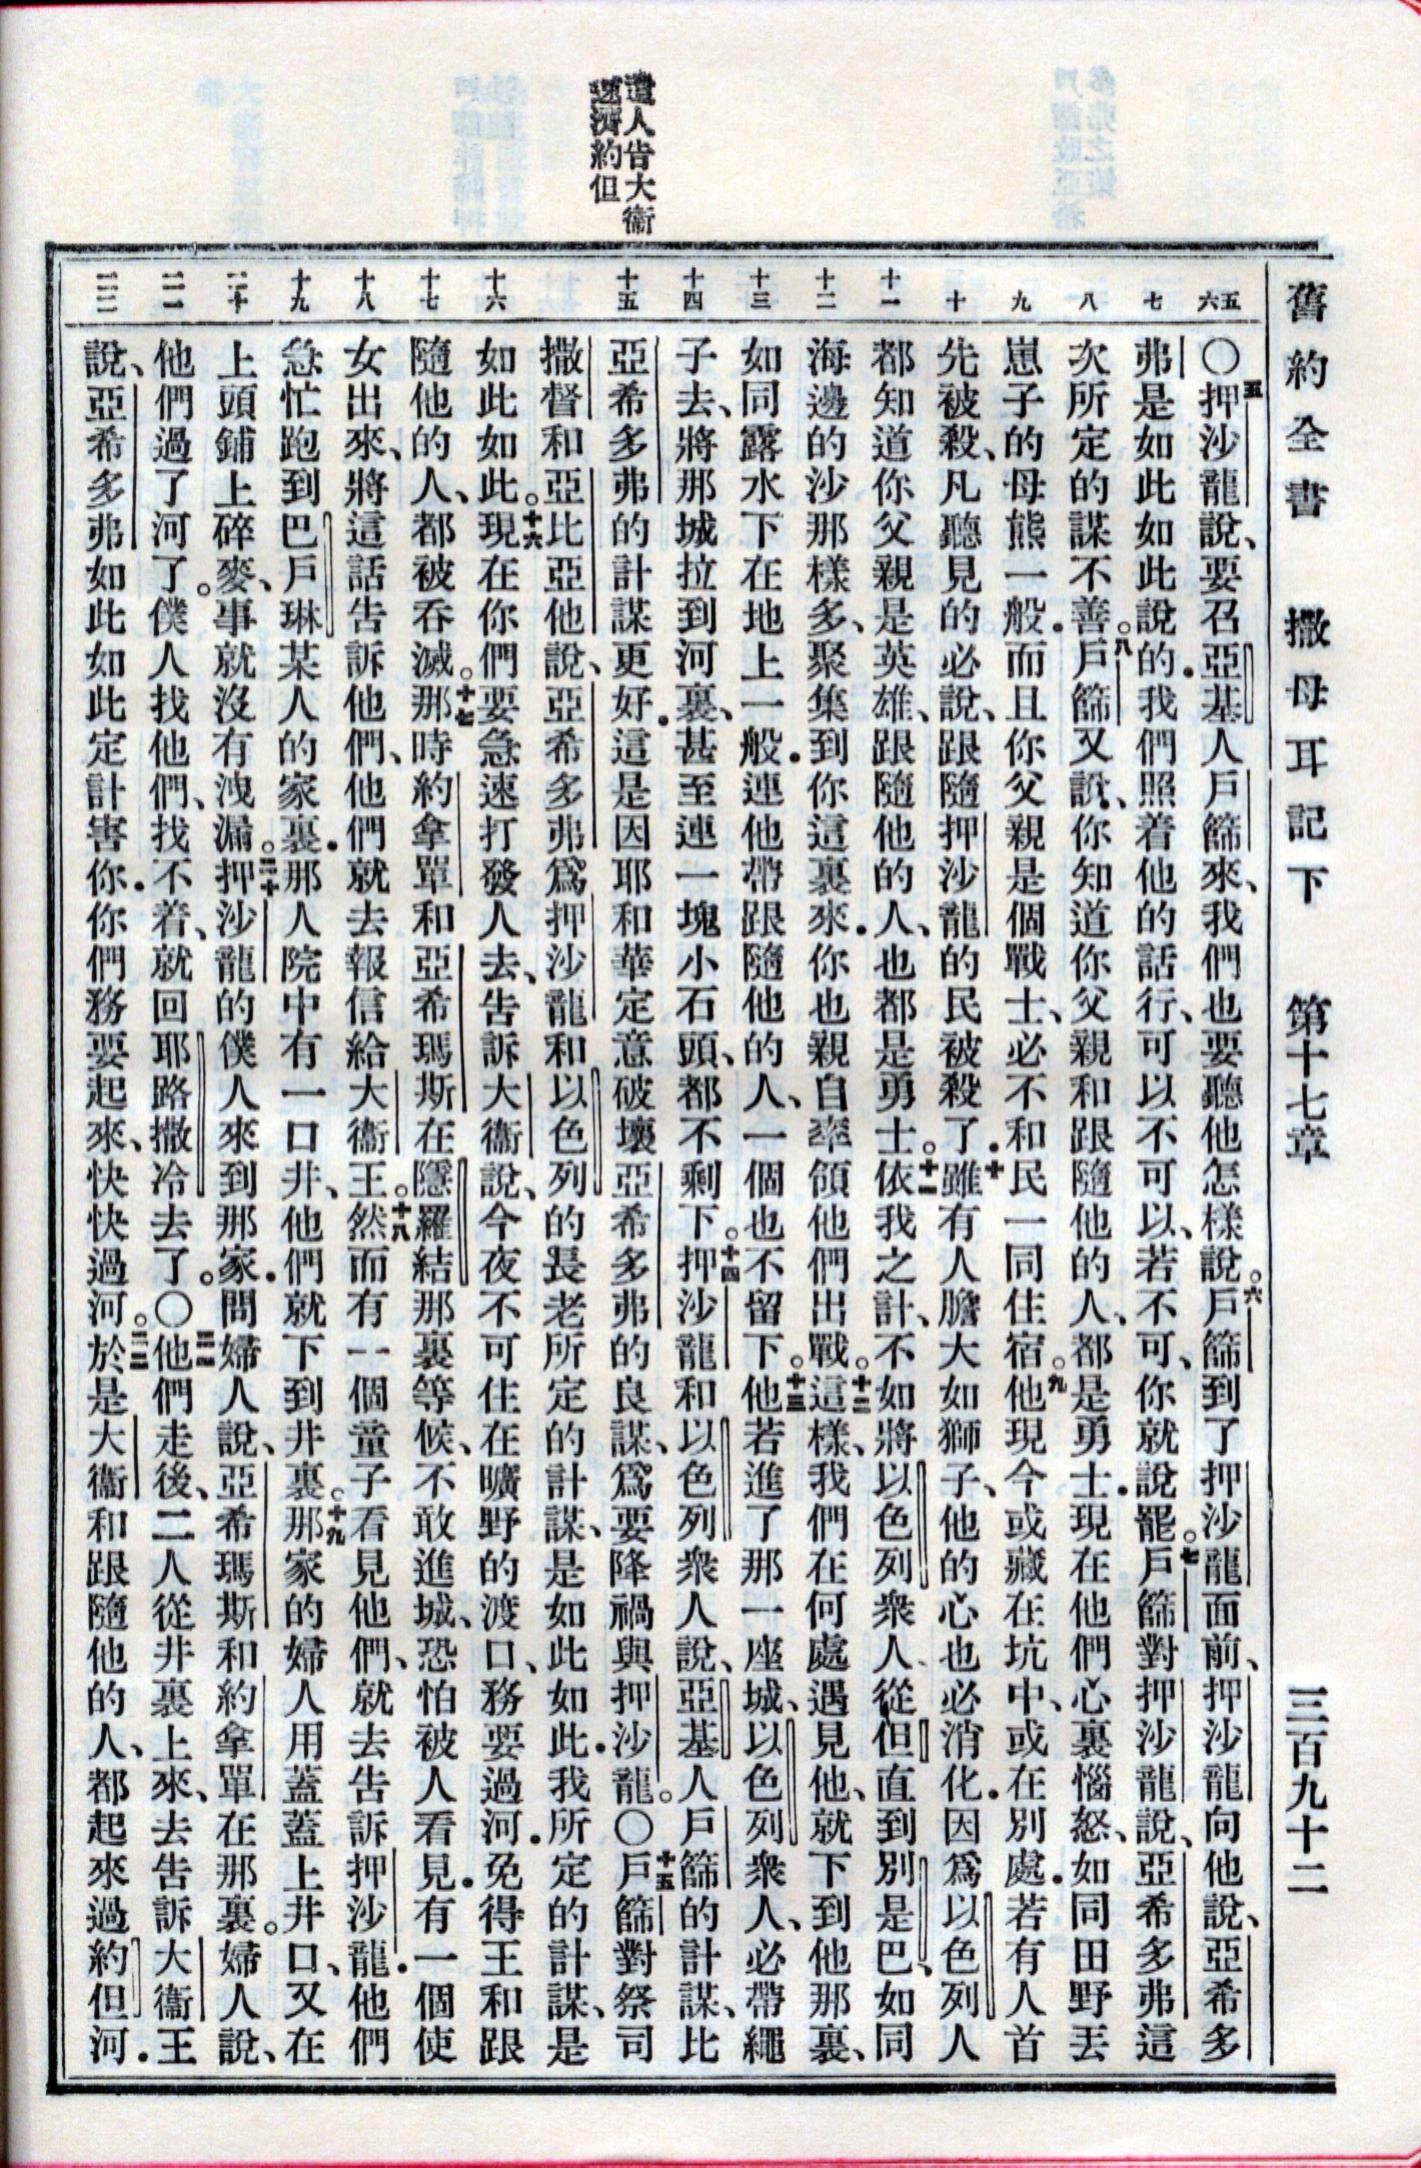 舊約全書　撒母耳記下　第十七章　三百九十二
遣人告大衞
速濟約但
五六
七
八
九
十
十一
十二
十三
十四
十五
十六
十七
十八
十九
二十
二一
二二
〇五押沙龍說、要召亞基人戶篩來、我們也要聽他怎樣說。六戶篩到了押沙龍面前、押沙龍向他說、亞希多
弗是如此如此說的．我們照着他的話行、可以不可以、若不可、你就說罷。七戶篩對押沙龍說、亞希多弗這
次所定的謀不善。八戶篩又說、你知道你父親和跟隨他的人、都是勇士．現在他們心裏惱怒、如同田野丟
崽子的母熊一般．而且你父親是個戰士、必不和民一同住宿。九他現今或藏在坑中、或在別處．若有人首
先被殺、凡聽見的必說、跟隨押沙龍的民被殺了．十雖有人膽大如獅子、他的心也必消化．因爲以色列人
都知道你父親是英雄、跟隨他的人、也都是勇士。十一依我之計、不如將以色列衆人、從但直到別是巴、如同
海邊的沙那樣多、聚集到你這裏來．你也親自率領他們出戰。十二這樣、我們在何處遇見他、就下到他那裏、
如同露水下在地上一般．連他帶跟隨他的人、一個也不留下。十三他若進了那一座城、以色列衆人、必帶繩
子去、將那城拉到河裏、甚至連一塊小石頭、都不剩下。十四押沙龍和以色列衆人說、亞基人戶篩的計謀、比
亞希多弗的計謀更好．這是因耶和華定意破壞亞希多弗的良謀、爲要降禍與押沙龍。〇十五戶篩對祭司
撒督和亞比亞他說、亞希多弗爲押沙龍和以色列的長老所定的計謀、是如此如此．我所定的計謀、是
如此如此。十六現在你們要急速打發人去、告訴大衞說、今夜不可住在曠野的渡口、務要過河．免得王和跟
隨他的人、都被吞滅。十七那時約拿單和亞希瑪斯在隱羅結那裏等候、不敢進城、恐怕被人看見．有一個使
女出來、將這話告訴他們、他們就去報信給大衞王。十八然而有一個童子看見他們、就去告訴押沙龍．他們
急忙跑到巴戶琳某人的家裏．那人院中有一口井、他們就下到井裏。十九那家的婦人用蓋蓋上井口、又在
上頭鋪上碎麥、事就沒有洩漏。二十押沙龍的僕人來到那家．問婦人說、亞希瑪斯和約拿單在那裏。婦人說、
他們過了河了。僕人找他們、找不着、就回耶路撒冷去了。〇二一他們走後、二人從井裏上來、去告訴大衞王
說、亞希多弗如此如此定計害你．你們務要起來、快快過河。二二於是大衞和跟隨他的人、都起來過約但河．